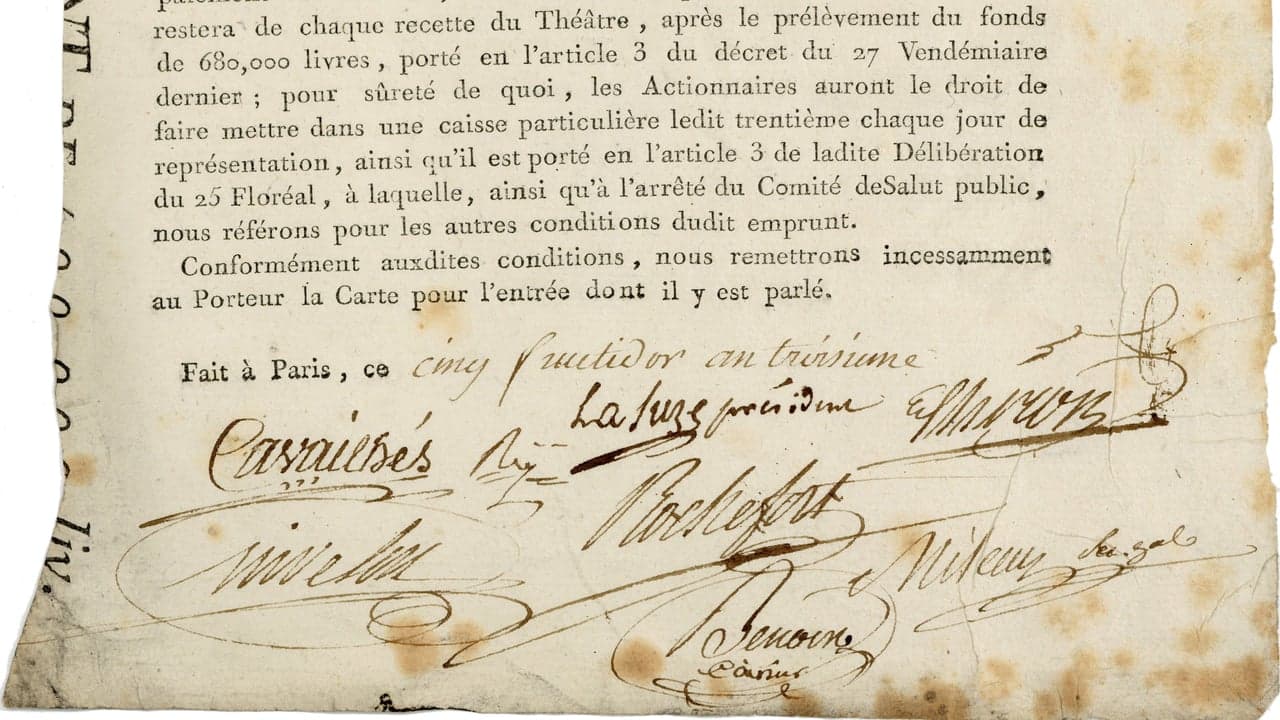 restera de chaque recette du Théâtre, après le prélèvement du fonds
de 680,000 livres, porté en l'article 3 du décret du 27 Vendémiaire
dernier; pour sûreté de quoi, les Actionnaires auront le droit de
faire mettre dans une caisse particulière ledit trentième chaque jour de
représentation, ainsi qu'il est porté en l'article 3 de ladite Délibération
du 25 Floréal, à laquelle, ainsi qu'à l'arrêté du Comité deSalut public,
nous référons pour les autres conditions dudit emprunt.
Conformément auxdites conditions, nous remettrons incessamment
au Porteur la Carte pour l'entrée dont il y est parlé.
Fait à Paris, ce cinq fructidor an troisieme
La Suze président
Cavailhés
Rochefort
liv.